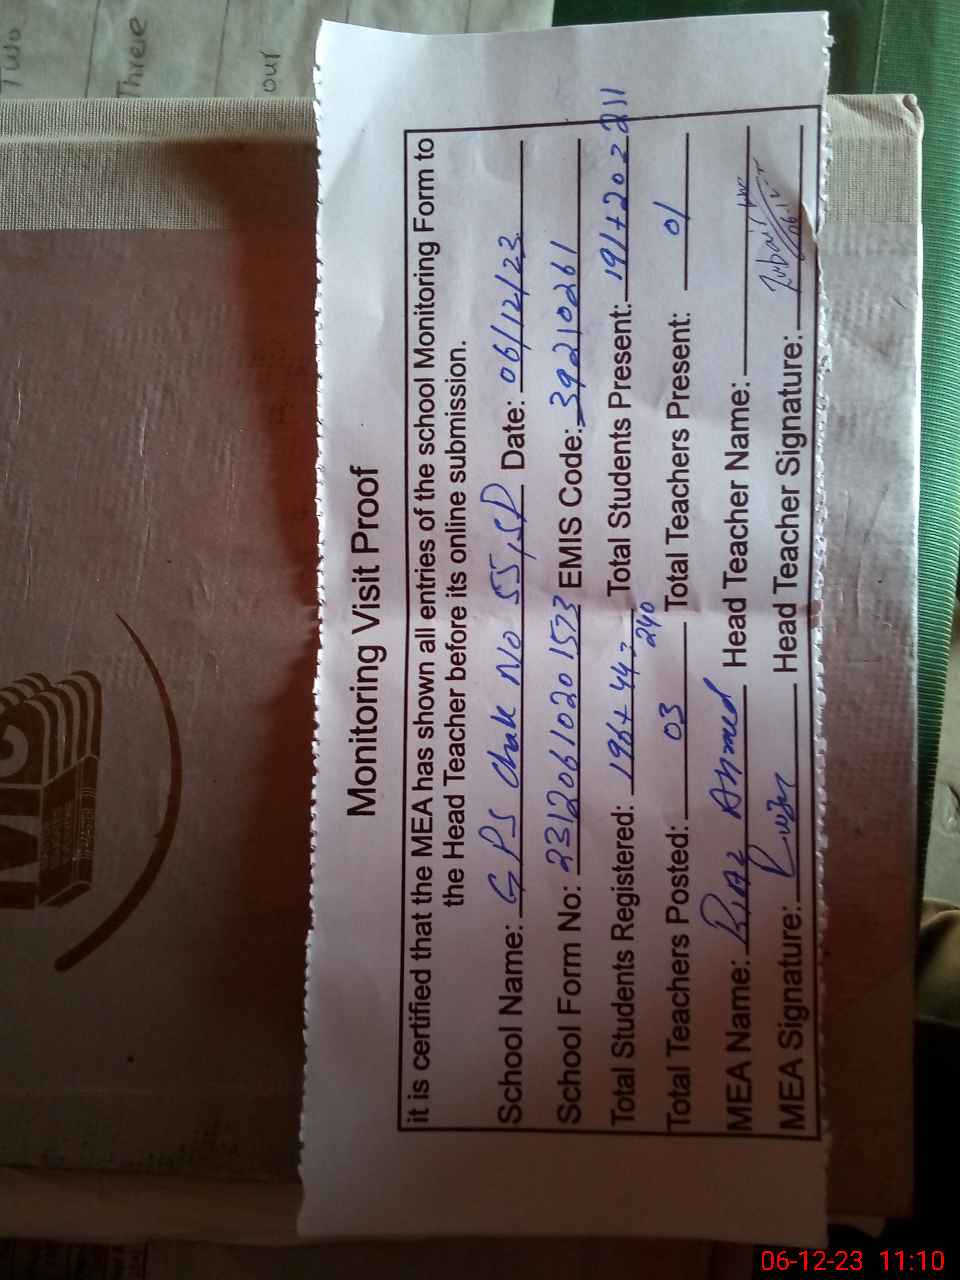 Two
Three
our
Monitoring Visit Proof
it is certified that the MEA has shown all entries of the school Monitoring Form to
the Head Teacher before its online submission.
School Name: GPS Chak No 55, SP Date: 06/12/23
School Form No: 23120610201573 EMIS Code: 39210261
Total Students Registered: 196+44= 240 Total Students Present: 191+20= 211
Total Teachers Posted: 03 Total Teachers Present: 01
MEA Name: Riaz Ahmed Head Teacher Name:
MEA Signature: Head Teacher Signature: Zubair
06-12-23 11:10